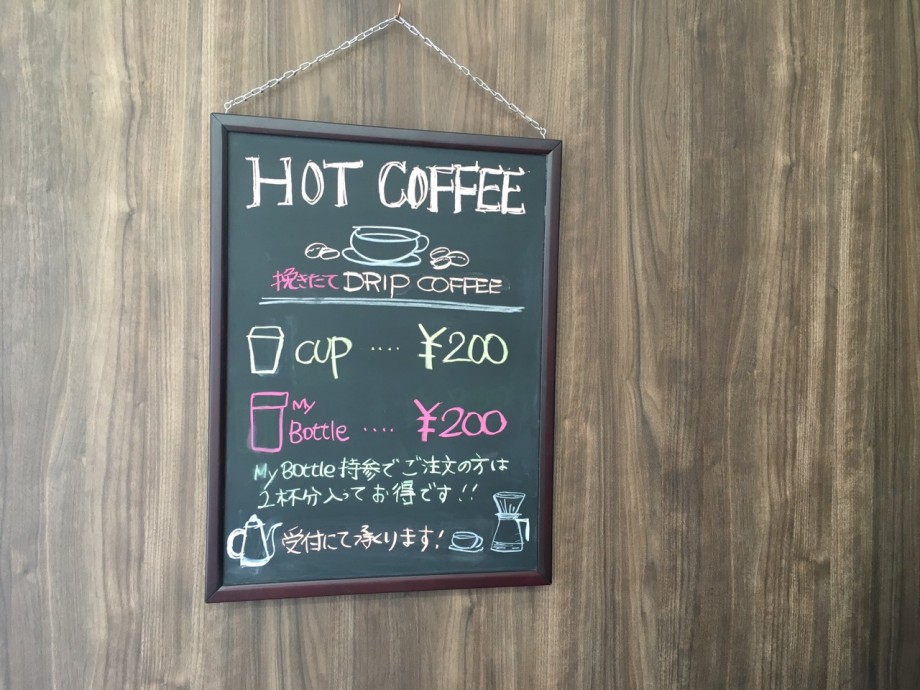 HOT COFFEE
挽きたて DRIP COFFEE
CUP .... ¥200
My
Bottle .... ¥200
My Bottle 持参でご注文の方は
2杯分入ってお得です!!
受付にて承ります!